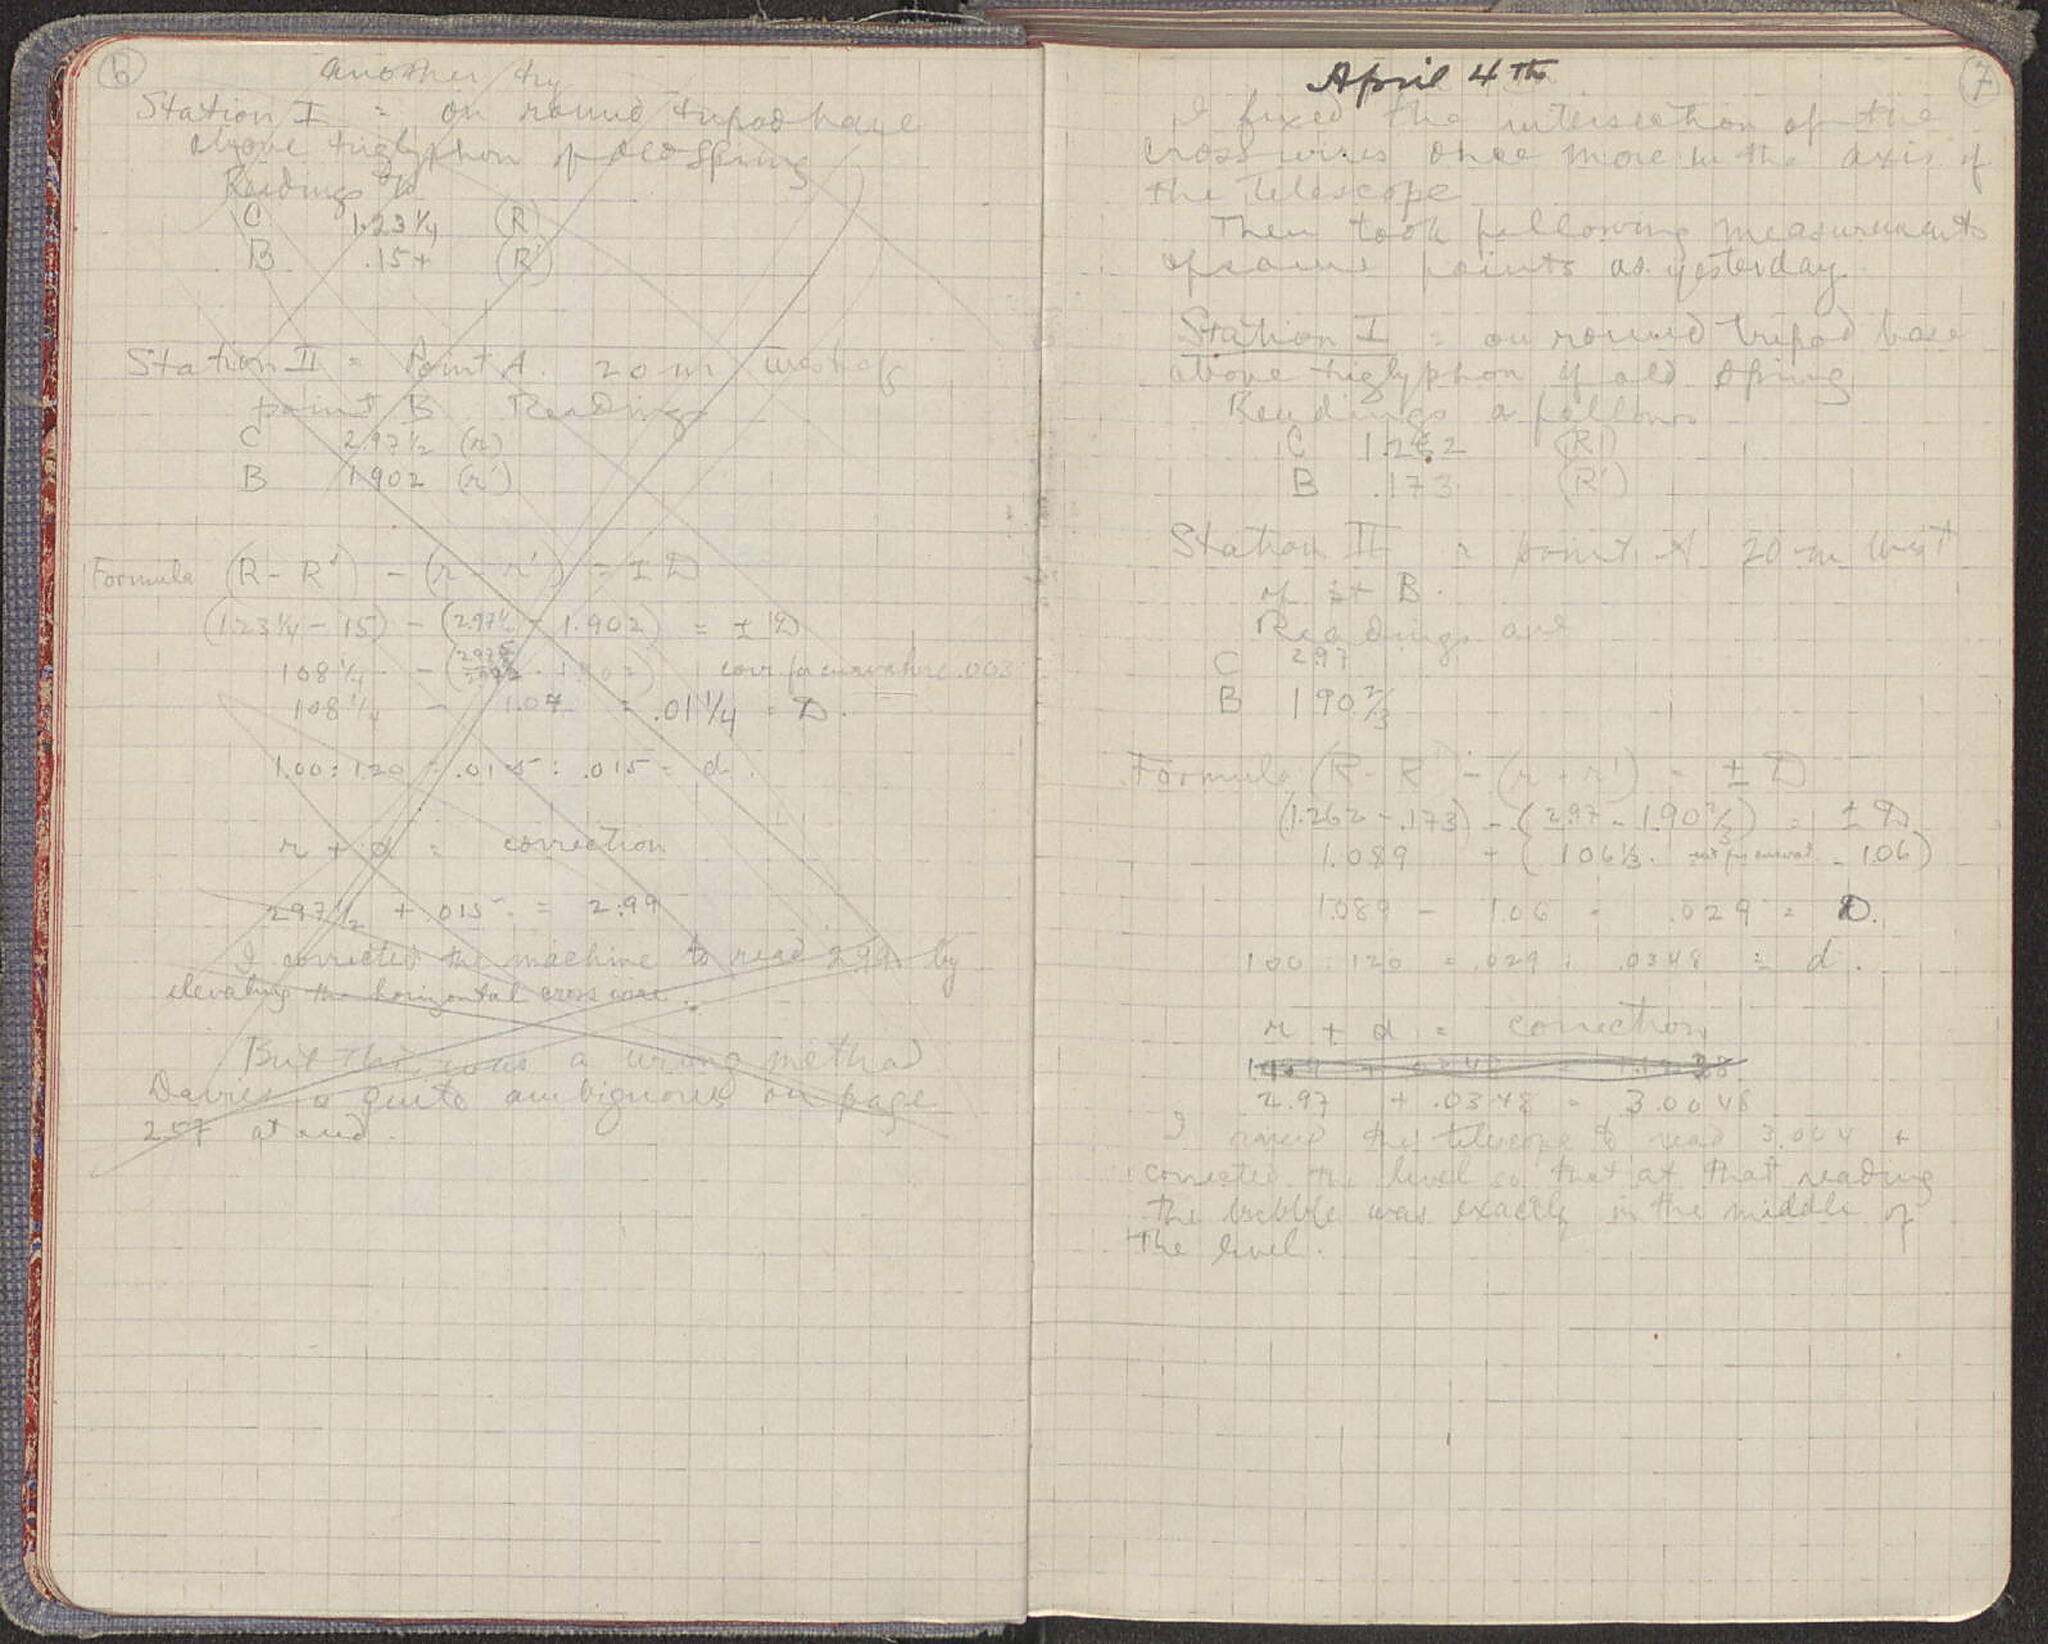 6
Another try
Station I = on round tripod base
above triglyphon of old Spring
Readings to
C 1.23 1/4 (R)
B .15+ (R')
Station II = Point A. 20 m west of
point B Readings
C 2.97 1/2 (r)
B 1.902 (r')
Formula (R - R') - (r - r') = ± D
(1.23 1/4 - 15) - (2.97 1/2 - 1.902) = ± D
108 1/4 - (2.975 - 1.902) corr for curvature .003
108 1/4 - 1.07 = .01 1/4 = D.
1.00 : 120 = .015 : .015 = d.
r + d = correction
297 1/2 + .015 = 2.99
I corrected the machine to read 2.99 by
elevating the horizontal cross wire.
But this was a wrong method
Davies is quite ambiguous on page
257 at end.
7
April 4th
I fixed the intersection of the
cross wires once more in the axis of
the Telescope
Then took following measurements
of same points as yesterday.
Station I = on round tripod base
above triglyphon of old Spring
Readings as follows
C 1.262 (R)
B .173 (R')
Station II = point A 20 m West
of pt B.
Readings are
C 2.97
B 1 90 2/3
Formula (R - R') - (r - r') = ± D
(1.262 - .173) - (2.97 - 1.90 2/3) = ± D
1.089 - (106 1/3. for curvat. = 1.06)
1.089 - 1.06 = .029 = D.
100 : 120 = .029 : .0348 = d.
r + d = correction
2.97 + .0348 = 3.0048
I raised the telescope to read 3.004 +
corrected the level so that at that reading
the bubble was exactly in the middle of
the level.